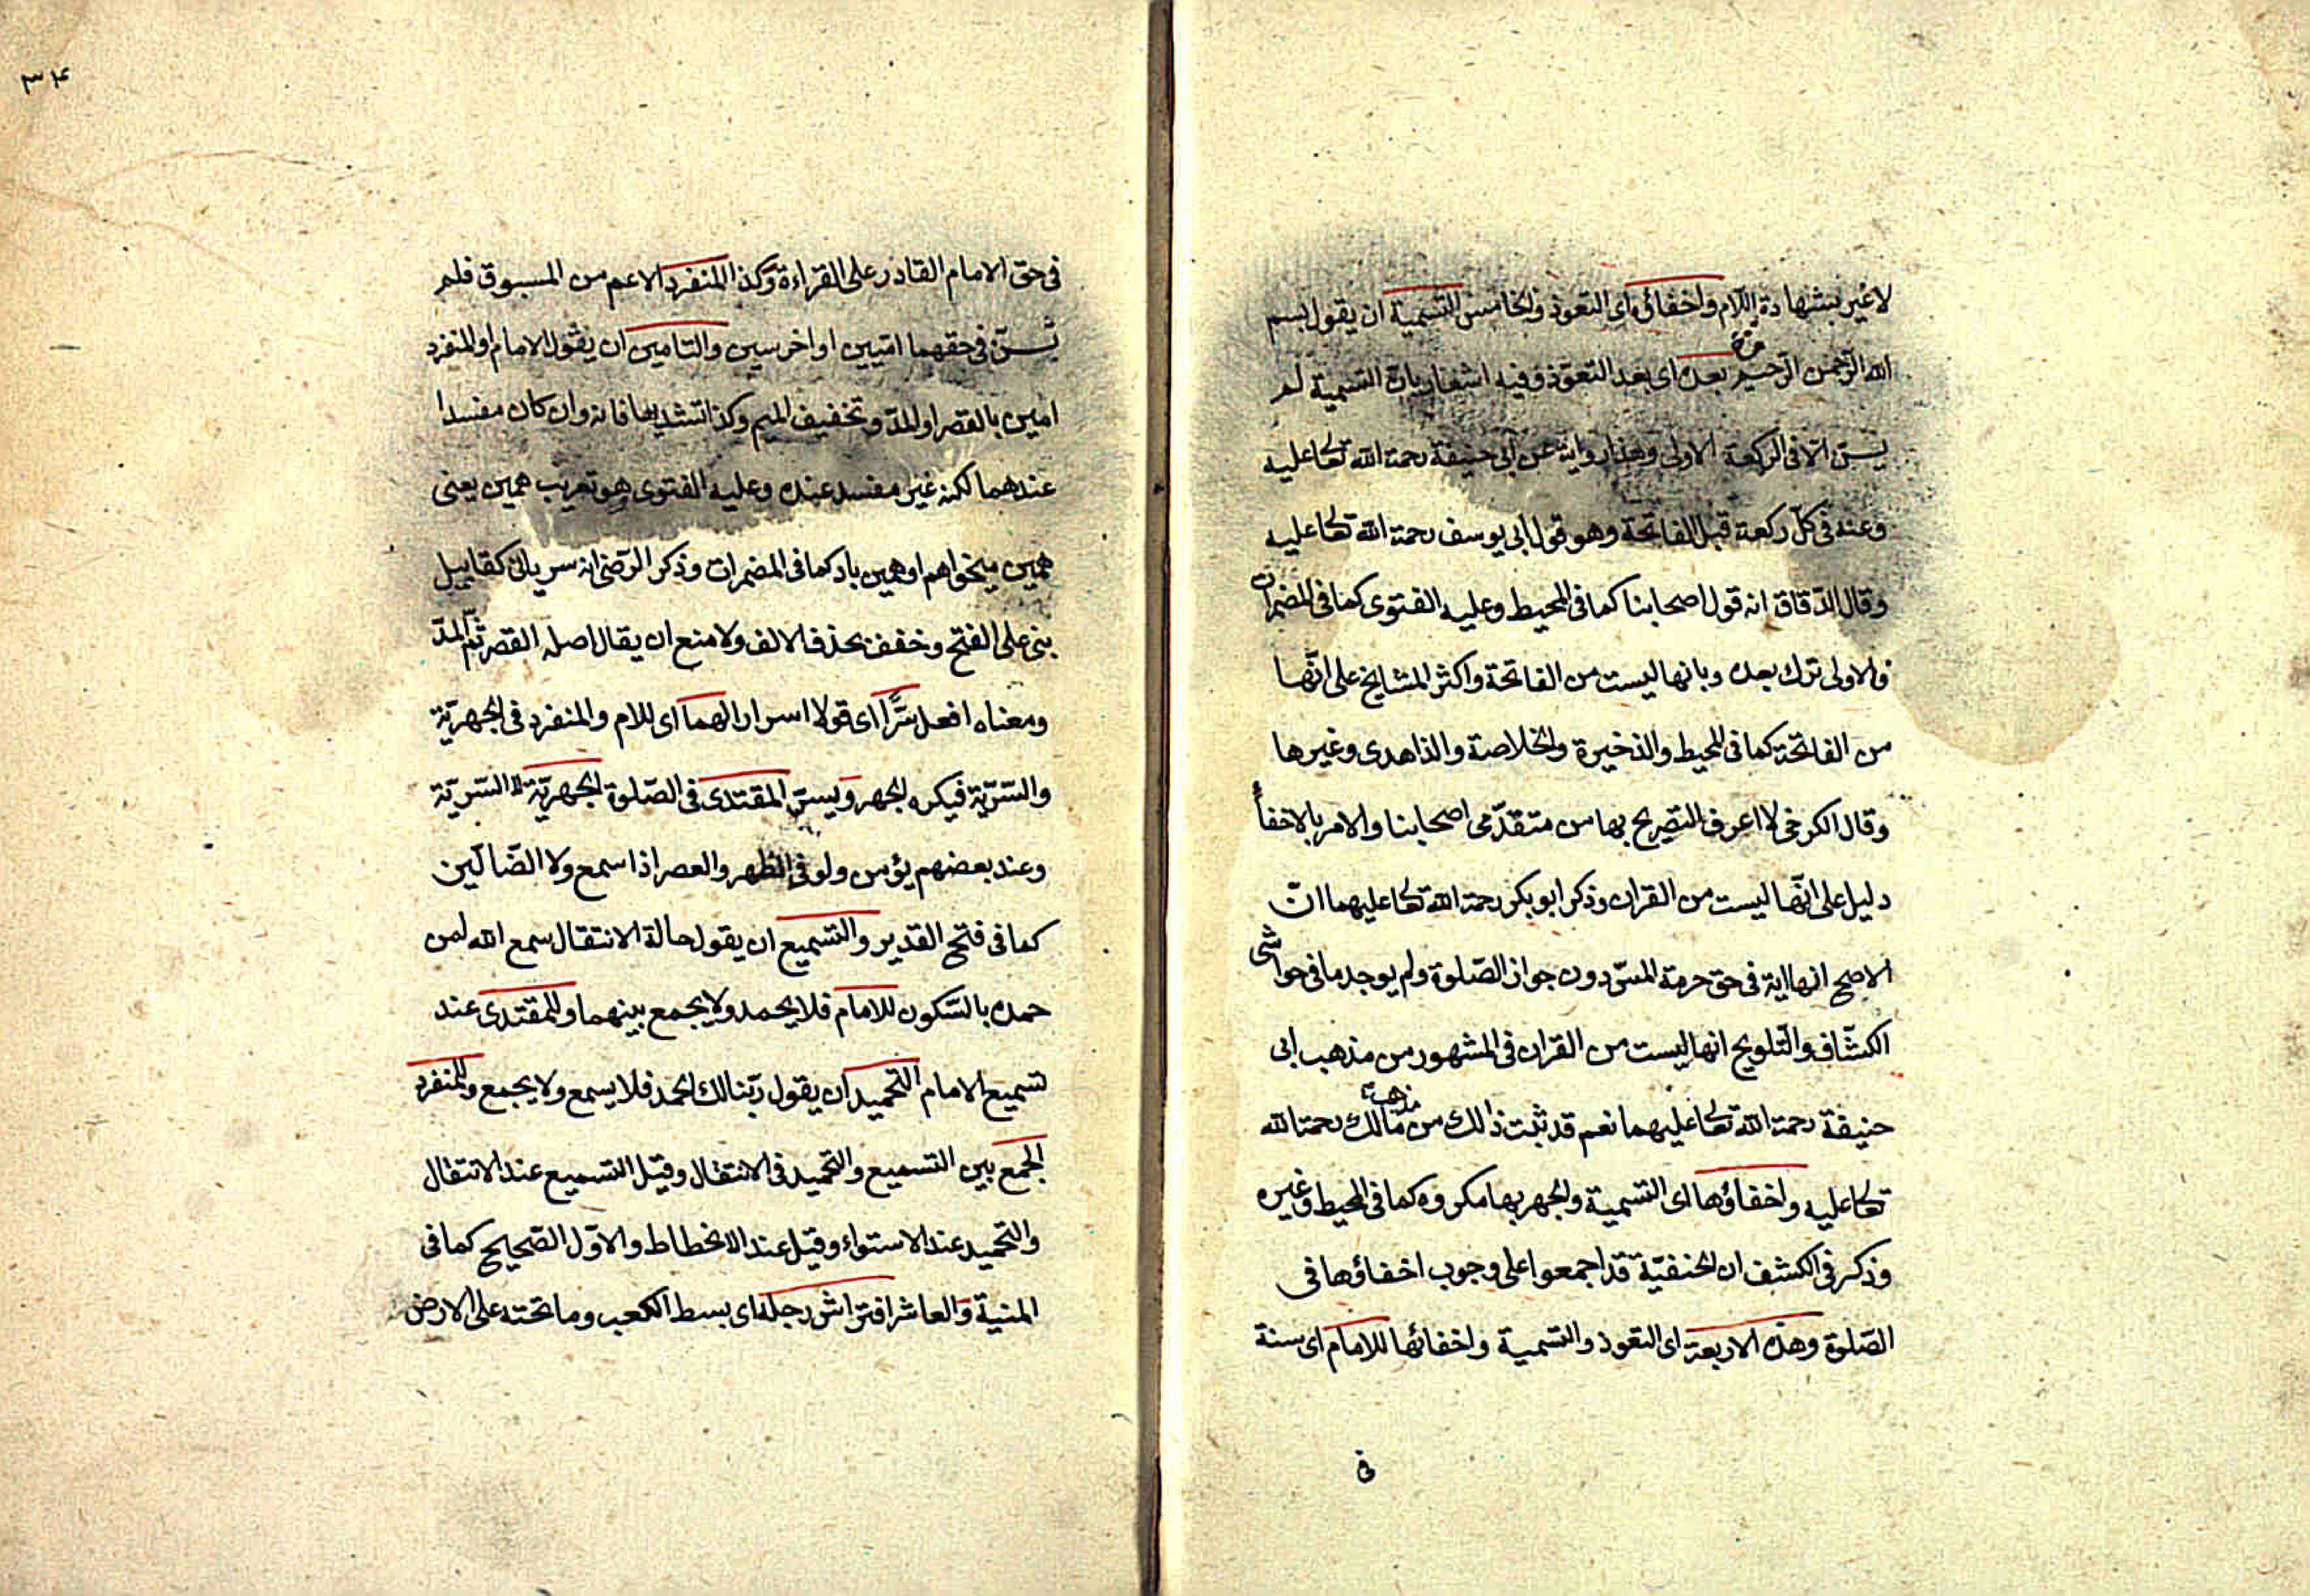 لا غير بشهادة اللام واخفائه اى التعوذ والخامس التسمية ان يقول بسم
الله الرحمن الرحيم بعده اى بعد التعوذ وفيه اشعار بان التسمية لم
يسنّ الا فى الركعة الاولى وهذا رواية عن ابى حنيفة رحمة الله تعا عليه
وعنه فى كلّ ركعة قبل الفاتحة وهو قول ابى يوسف رحمة الله تعا عليه
وقال الدّقاق انه قول اصحابنا كما فى المحيط وعليه الفتوى كما فى المضمرات
فالاولى ترك بعده وبانها ليست من الفاتحة واكثر المشايخ على انّها
من الفاتحة كما فى المحيط والذخيرة والخلاصة والذاهدى وغيرها
وقال الكرخى لا اعرف التصريح بها من متقدّمى اصحابنا والامر بالاخفأ
دليل على انّها ليست من القران وذكر ابو بكر رحمة الله تعا عليهما انّ
الاصح انها اية فى حق حرمة المسّ دون جواز الصّلوة ولم يوجد ما فى حواشى
الكشّاف والتّلويح انها ليست من القران فى المشهور من مذهب ابى
حنيفة رحمة الله تعا عليهما نعم قد ثبت ذالك من مذهب مالك رحمة الله
تعا عليه واخفاؤها اى التسمية والجهر بها مكروه كما فى المحيط وغيره
وذكر فى الكشف ان الحنفيّة قد اجمعوا على وجوب اخفاؤها فى
الصّلوة وهذه الاربعة اى التعوذ والتسمية واخفائها للامام اى سنة
فى
٣٤
فى حق الامام القادر على القراءة وكذا المنفرد الاعم من المسبوق فلم
يسنّ فى حقهما اميين او اخرسين والتامين ان يقول الامام او المنفرد
امين بالقصر او المدّ وتخفيف الميم وكذا تشديدها فانه وان كان مفسدا
عندهما لكنه غير مفسد عنده وعليه الفتوى هو تعريب همين يعنى
همين ميخواهم او همين باد كما فى المضمرات وذكر الرّضى انه سريانى كقابيل
بنى على الفتح وخفف بحذف الالف ولا منع ان يقال اصله القصر ثمّ المدّ
ومعناه افعل سرًّا اى قولا اسرارا لهما اى للام والمنفرد فى الجهريّة
والسّريّة فيكره الجهر ويسنّ المقتدى فى الصّلوة الجهريّة لا السّريّة
وعند بعضهم يؤمن ولو فى الظهر والعصر اذا سمع ولا الضّالّين
كما فى فتح القدير والتسميع ان يقول حالة الانتقال سمع الله لمن
حمده بالسّكون للامام فلا يحمد ولا يجمع بينهما وللمقتدى عند
تسميع الامام التحميد ان يقول ربّنا لك الحمد فلا يسمع ولا يجمع وللمنفرد
الجمع بين التسميع والتحميد فى الانتقال وقيل التسميع عند الانتقال
والتحميد عند الاستواء وقيل عند الانحطاط والاوّل الصّحيح كما فى
المنية والعاشر افتراش رجله اى بسط الكعب وما تحته على الارض